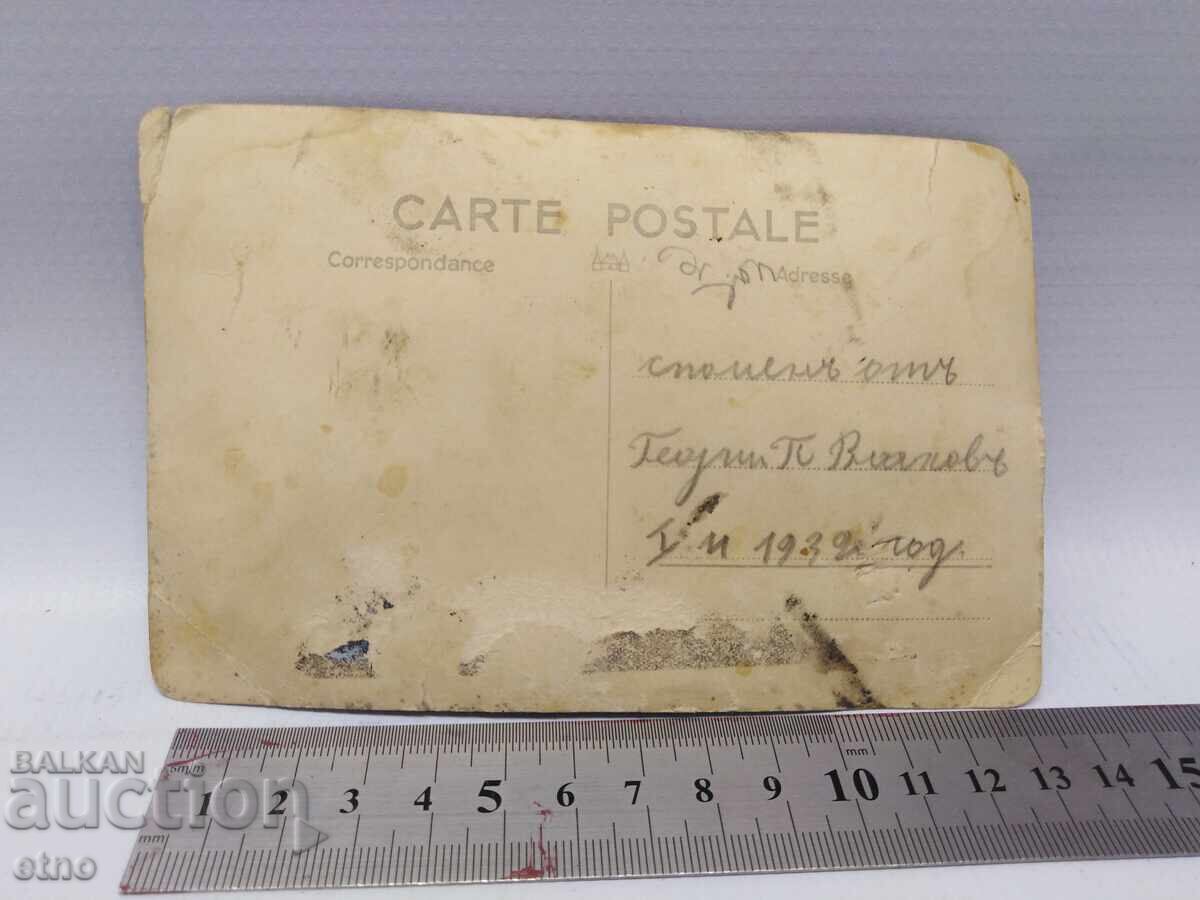 CARTE POSTALE
Correspondance
Adresse
споменъ отъ
Георги П
1932 год.
BALKAN
auction
etno
5m/m
1 2 3 4 5 6 7 8 9 10 11 12 13 14 15
mm
mm